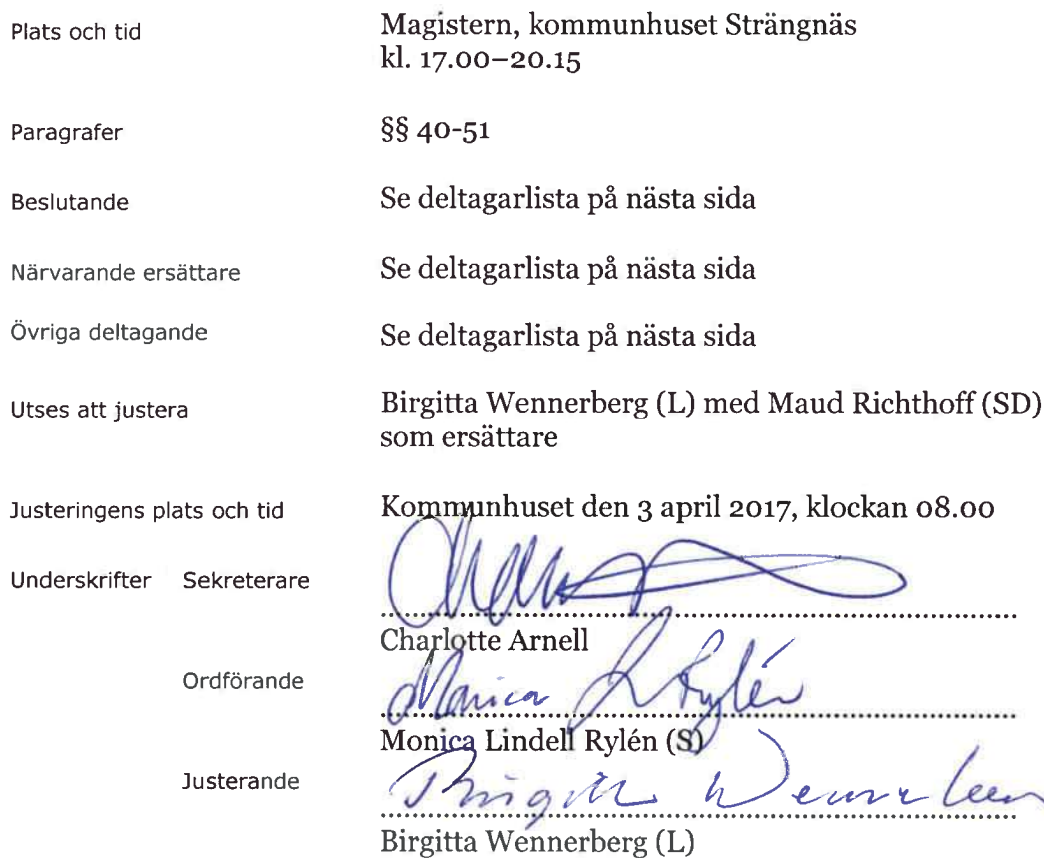 Plats och tid Magistern, kommunhuset Strängnäs
kl. 17.00–20.15
Paragrafer §§ 40-51
Beslutande Se deltagarlista på nästa sida
Närvarande ersättare Se deltagarlista på nästa sida
Övriga deltagande Se deltagarlista på nästa sida
Utses att justera Birgitta Wennerberg (L) med Maud Richthoff (SD)
som ersättare
Justeringens plats och tid Kommunhuset den 3 april 2017, klockan 08.00
Underskrifter Sekreterare
Charlotte Arnell
Ordförande Monica L Rylén
Monica Lindell Rylén (S)
Justerande Birgitta
Birgitta Wennerberg (L)